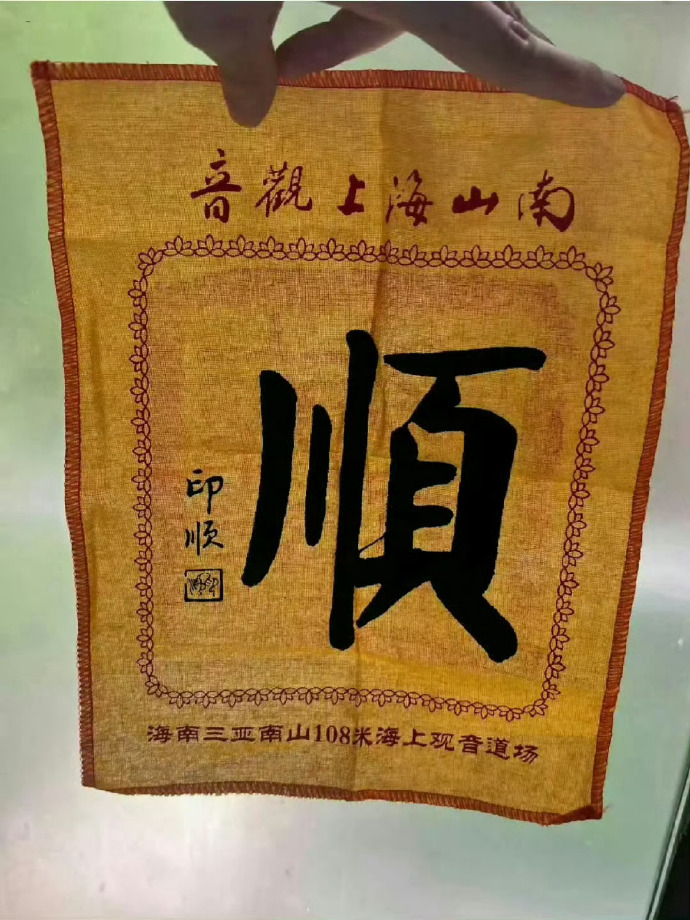 南山海上觀音
順
印顺
海南三亚南山108米海上观音道场